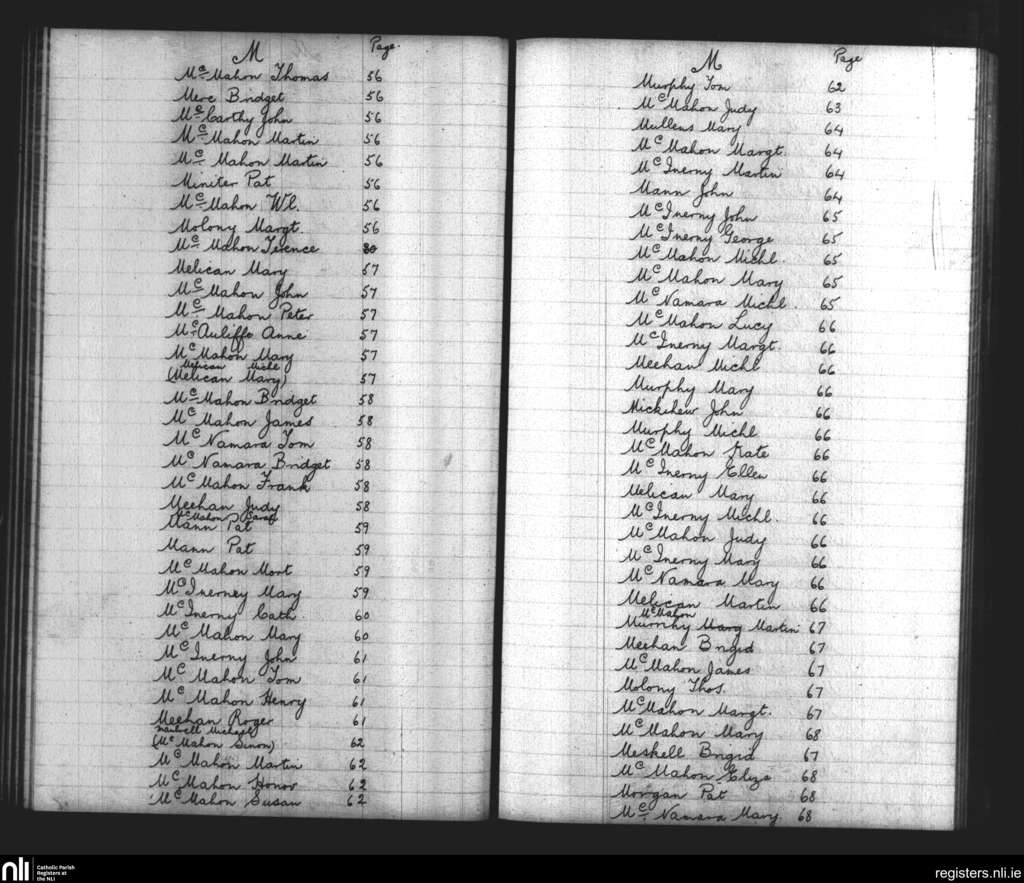 M Page.
McMahon Thomas 56
Mere Bridget 56
McCarthy John 56
McMahon Martin 56
McMahon Martin 56
Miniter Pat 56
McMahon Wl. 56
Molony Margt. 56
McMahon Terence 80
Melican Mary 57
McMahon John 57
McMahon Peter 57
McAuliffe Anne 57
McMahon Mary 57
Melican Michl
(Melican Mary) 57
McMahon Bridget 58
McMahon James 58
McNamara Tom 58
McNamara Bridget 58
McMahon Frank 58
Meehan Judy 58
McMahon Sarah
Mann Pat 59
Mann Pat 59
McMahon Mort 59
McInerney Mary 59
McInerny Cath. 60
McMahon Mary 60
McInerny John 61
McMahon Tom 61
McMahon Henry 61
Meehan Roger 61
Maxwell Michael
(McMahon Sinon) 62
McMahon Martin 62
McMahon Honor 62
McMahon Susan 62
M Page
Murphy Tom 62
McMahon Judy 63
Mullens Mary 64
McMahon Margt. 64
McInerny Martin 64
Mann John 64
McInerny John 65
McInerny George 65
McMahon Michl. 65
McMahon Mary 65
McNamara Michl 65
McMahon Lucy 66
McInerny Margt. 66
Meehan Michl 66
Murphy Mary 66
Mickshew John 66
Murphy Michl 66
McMahon Kate 66
McInerny Ellen 66
Melican Mary 66
McInerny Michl. 66
McMahon Judy 66
McInerny Mary 66
McNamara Mary 66
Melican Martin 66
McMahon
Murphy Mary Martin 67
Meehan Brigid 67
McMahon James 67
Molony Thos. 67
McMahon Margt. 67
McMahon Mary 68
Meskell Brigid 67
McMahon Eliza 68
Morgan Pat 68
McNamara Mary. 68
nli Catholic Parish
Registers at
the NLI
registers.nli.ie